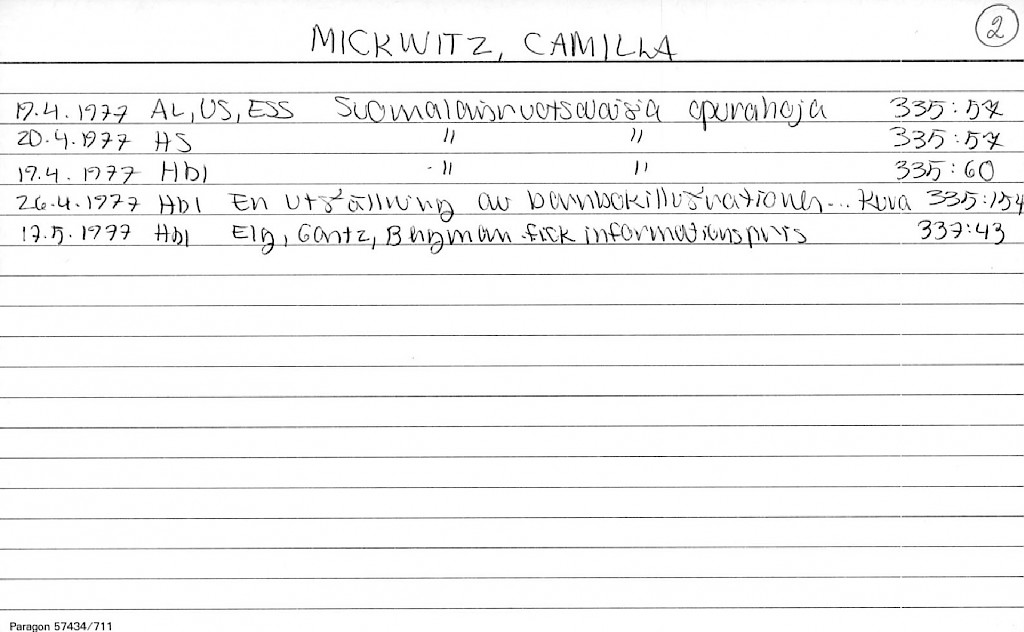 MICKWITZ, CAMILLA
2
19.4.1977 AL, US, ESS Suomalaisruotsalaisia apurahoja 335:57
20.4.1977 HS " " 335:57
19.4.1977 Hbl -" " 335:60
26.4.1977 Hbl En utställning av barnboksillustrationer... Kuva 335:154
17.5.1977 Hbl Elg, Gantz, Bergman fick informationspris 337:43
Paragon 57434/711